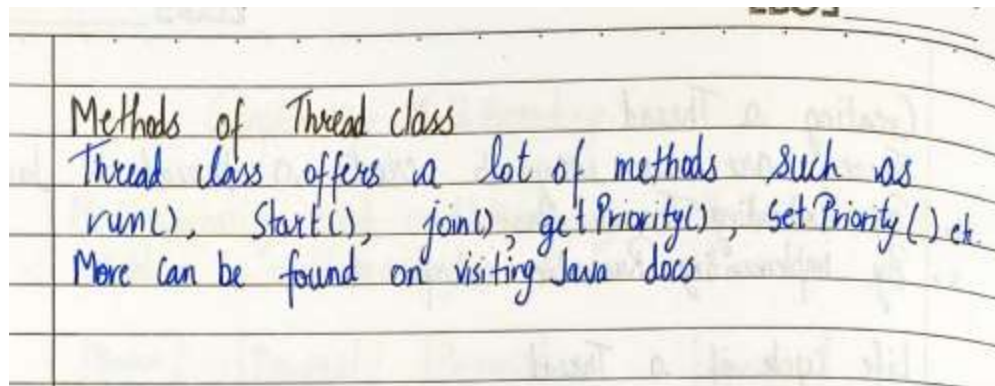 Methods of Thread class
Thread class offers a lot of methods such as
run(), Start(), join(), getPriority(), SetPriority() etc.
More can be found on visiting Java docs